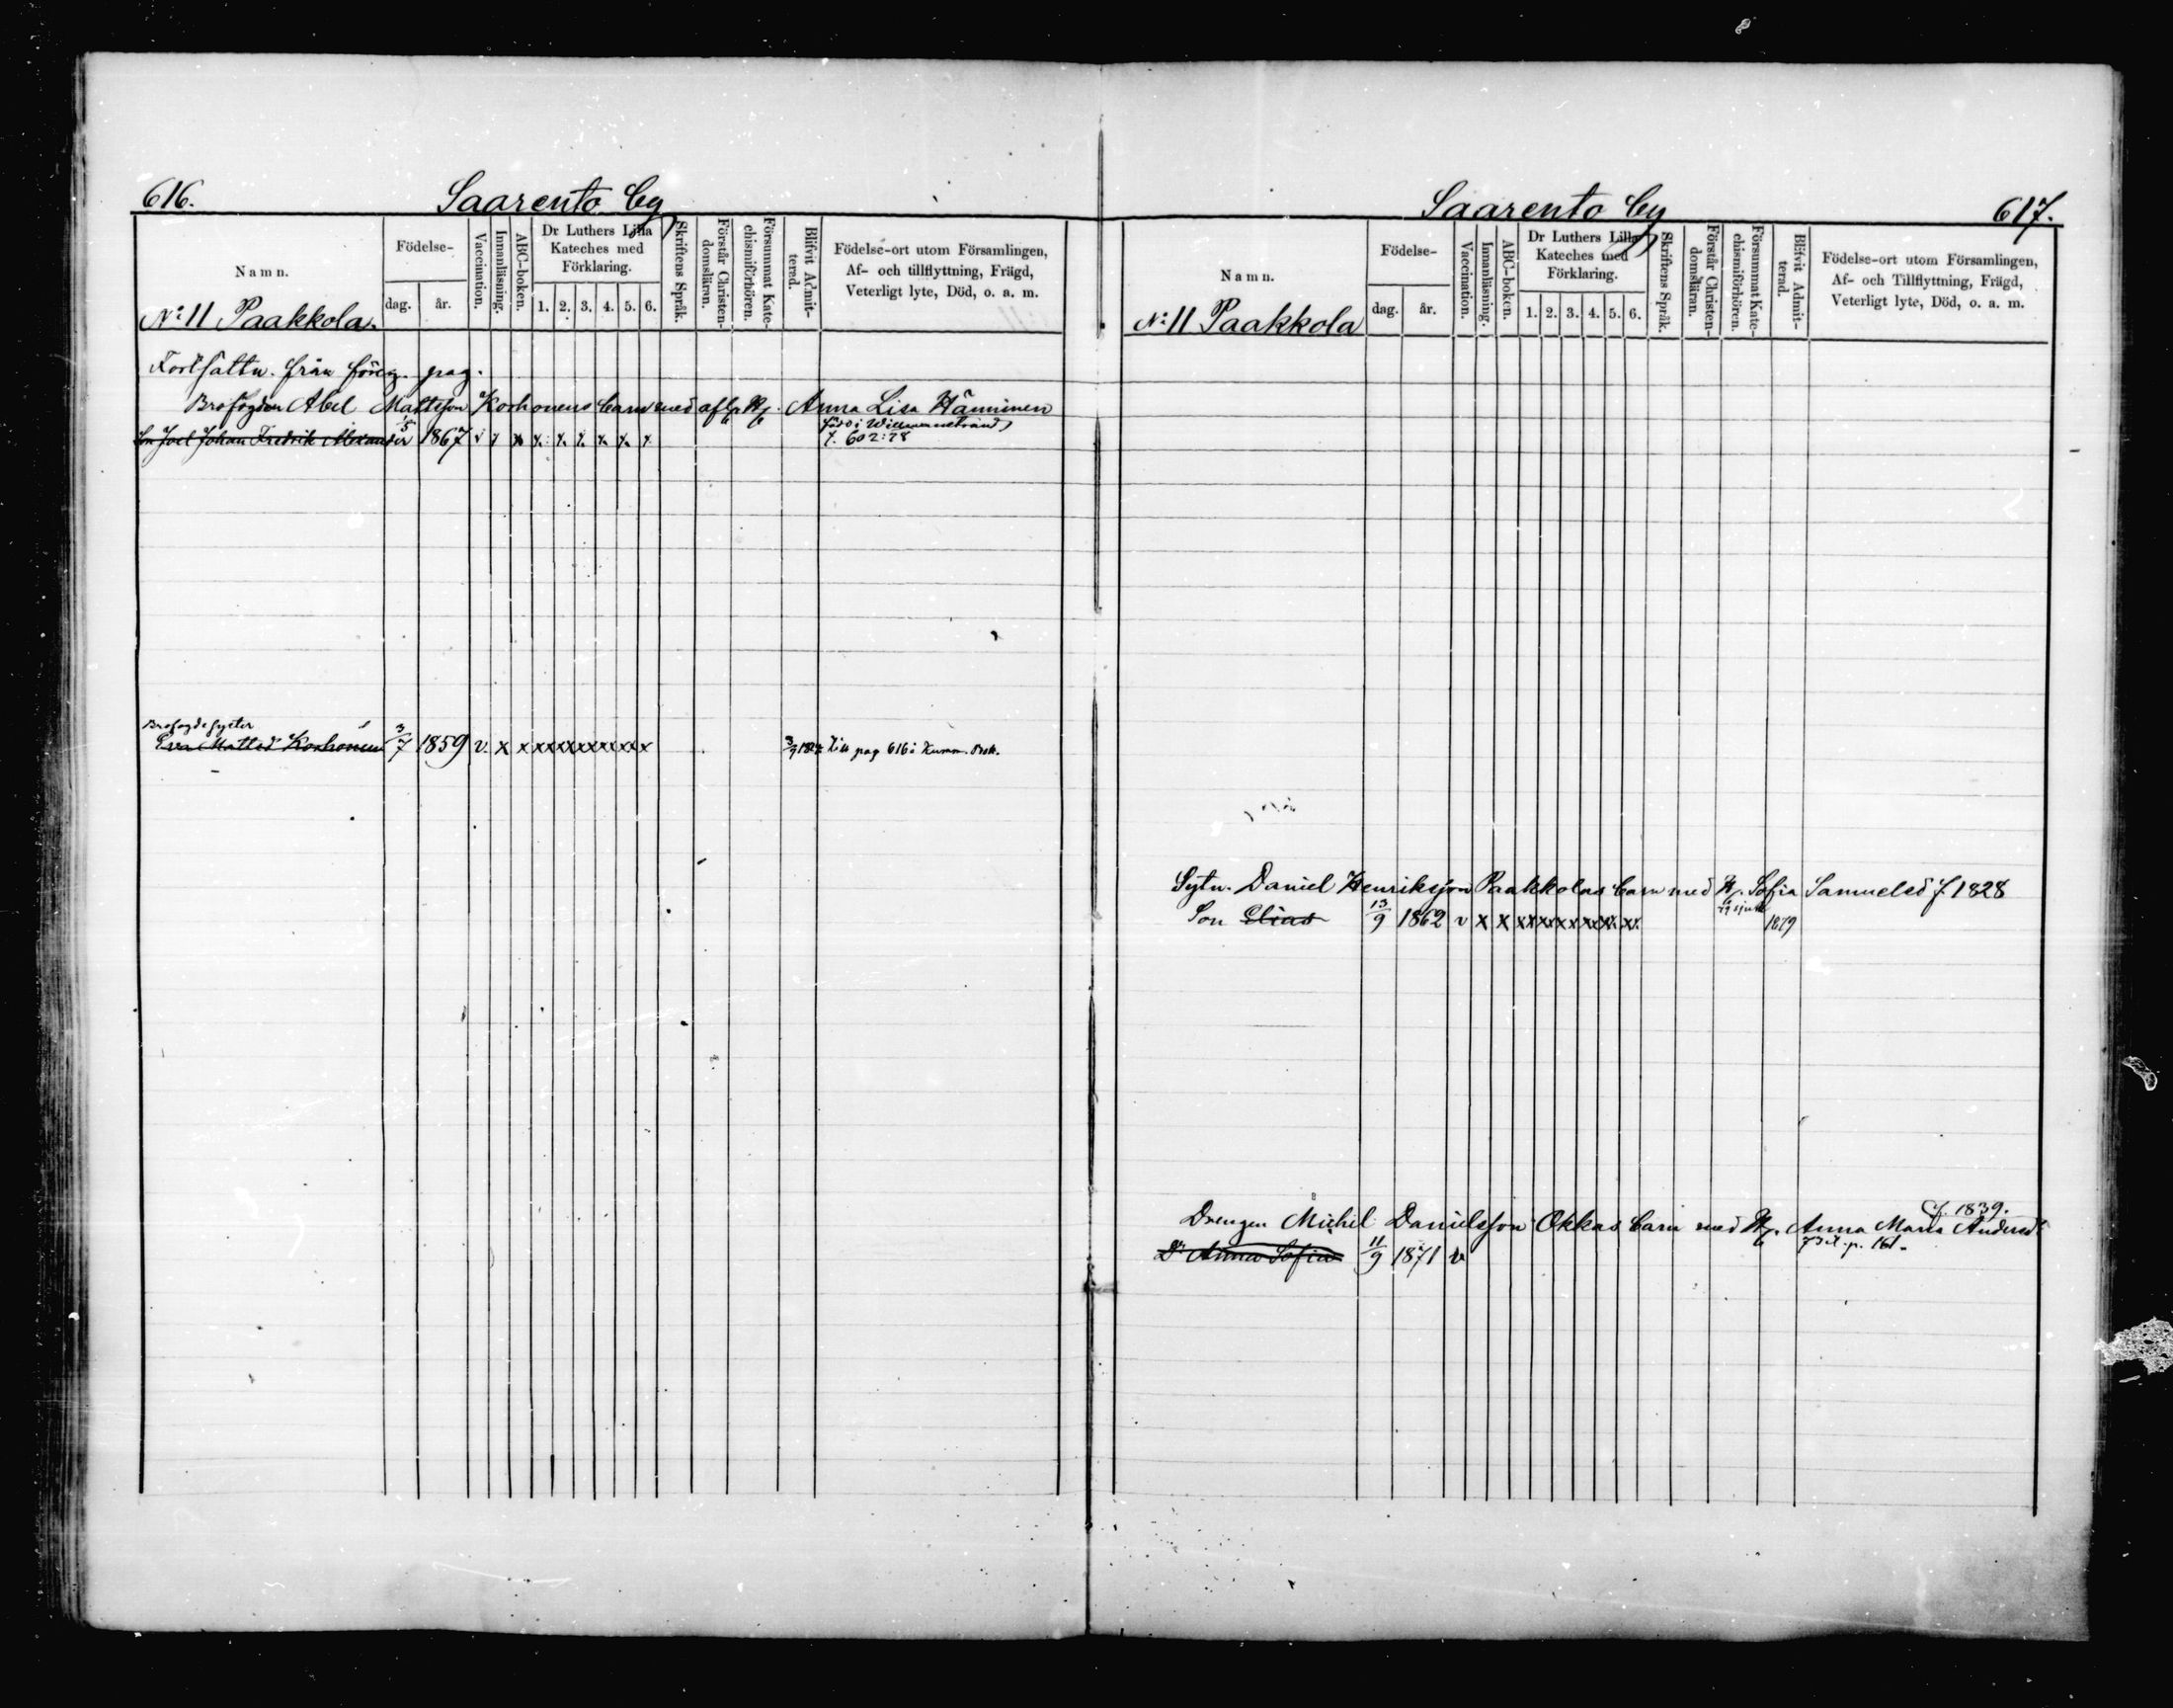 616.
Saarento by
Namn.
Födelse-
dag.
år.
Vaccination.
Innanläsning.
ABC-boken.
Dr Luthers Lilla
Kateches med
Förklaring.
1. 2. 3. 4. 5. 6.
Skriftens Språk.
Förstår Christen-
domsläran.
Försummat Kate-
chismiförhören.
Blifvit Admit-
terad.
Födelse-ort utom Församlingen,
Af- och tillflyttning, Frägd,
Veterligt lyte, Död, o. a. m.
No: 11 Paakkola.
Fortsättn. från föreg. pag.
Brofogden Abel Mattsson Korhonens barn med afl. H. Anna Lisa Hänninen
född i Willmanstrand
Son Joel Johan Fredrik Alexander 1867 v x x x x x x x x
t. 602:78
Brofogdesyster
Eva Mattsd Korhonen 3/7 1859 v. x x x x x x x x x x x x x x Till pag 616 i Kumm. Bok.
Saarento by
617.
Namn.
Födelse-
dag.
år.
Vaccination.
Innanläsning.
ABC-boken.
Dr Luthers Lilla
Kateches med
Förklaring.
1. 2. 3. 4. 5. 6.
Skriftens Språk.
Förstår Christen-
domsläran.
Försummat Kate-
chismiförhören.
Blifvit Admit-
terad.
Födelse-ort utom Församlingen,
Af- och Tillflyttning, Frägd,
Veterligt lyte, Död, o. a. m.
No: 11 Paakkola
Sytn. Daniel Henriksson Paakkolas barn med H. Sofia Samuelsd f. 1828
Son Elias 13/9 1862 v x x x x x x x x x x x x x x 1879
f. 1839.
Drengen Michel Danielsson Okkas barn med H. Anna Maria Andersd
Dr Anna Sofia 11/9 1871 v
p. 161.